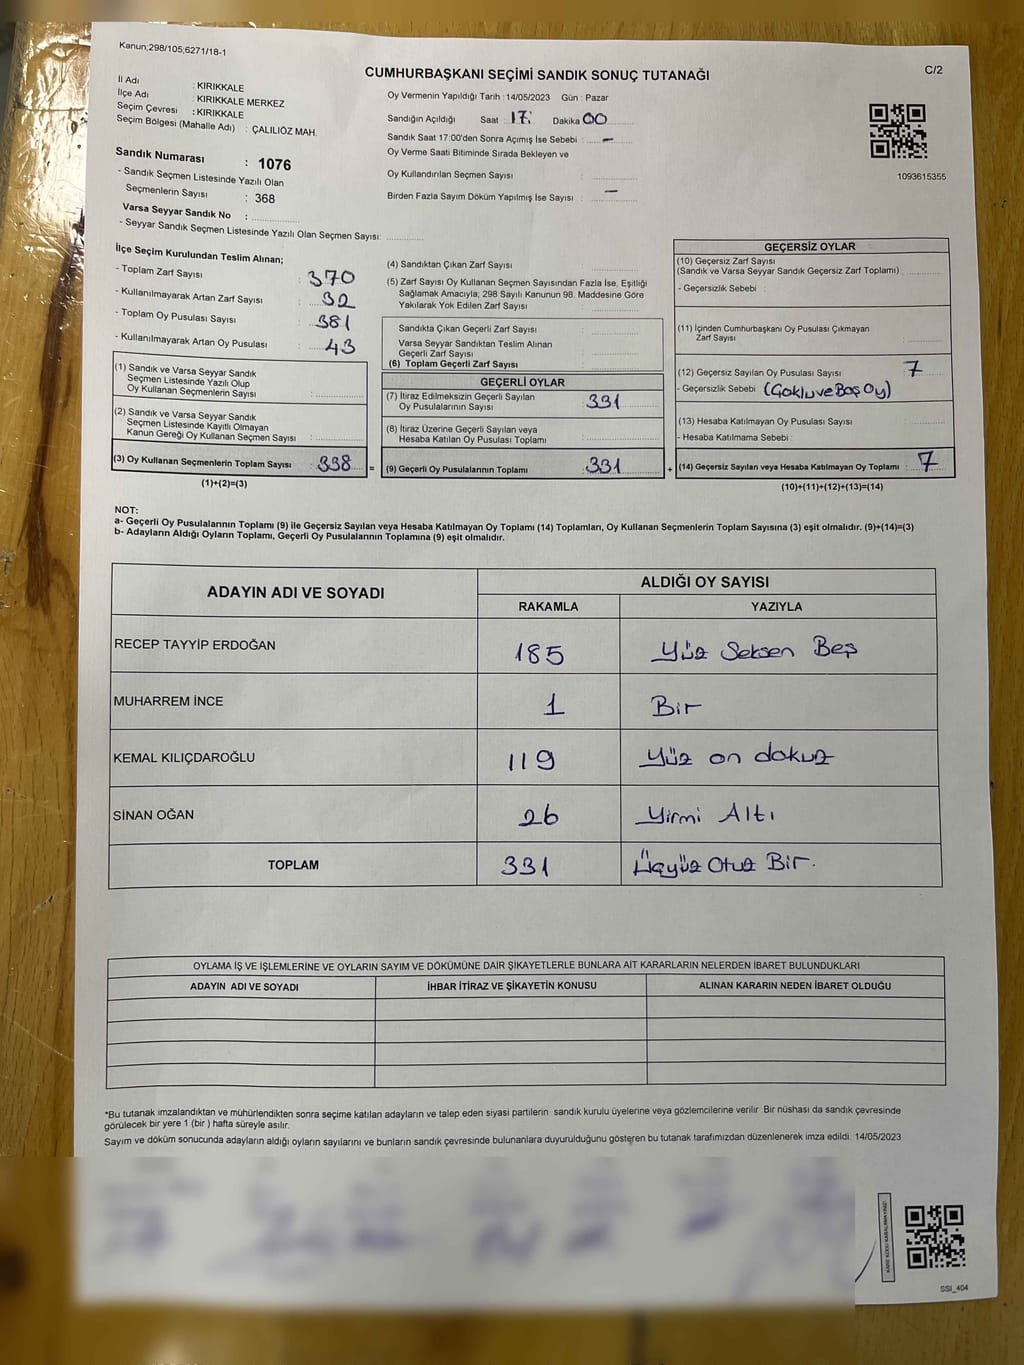 Kanun;298/105;6271/18-1
C/2
CUMHURBAŞKANI SEÇİMİ SANDIK SONUÇ TUTANAĞI
İl Adı : KIRIKKALE
İlçe Adı : KIRIKKALE MERKEZ
Seçim Çevresi : KIRIKKALE
Seçim Bölgesi (Mahalle Adı) : ÇALILIÖZ MAH.
Sandık Numarası : 1076
- Sandık Seçmen Listesinde Yazılı Olan
Seçmenlerin Sayısı : 368
Varsa Seyyar Sandık No :
- Seyyar Sandık Seçmen Listesinde Yazılı Olan Seçmen Sayısı:
Oy Vermenin Yapıldığı Tarih : 14/05/2023 Gün : Pazar
Sandığın Açıldığı Saat : 17: Dakika 00
Sandık Saat 17:00'den Sonra Açımış İse Sebebi : -
Oy Verme Saati Bitiminde Sırada Bekleyen ve
Oy Kullandırılan Seçmen Sayısı :
Birden Fazla Sayım Döküm Yapılmış İse Sayısı : -
1093615355
İlçe Seçim Kurulundan Teslim Alınan;
- Toplam Zarf Sayısı : 370
- Kullanılmayarak Artan Zarf Sayısı : 32
- Toplam Oy Pusulası Sayısı : 381
- Kullanılmayarak Artan Oy Pusulası : 43
(1) Sandık ve Varsa Seyyar Sandık
Seçmen Listesinde Yazılı Olup
Oy Kullanan Seçmenlerin Sayısı :
(2) Sandık ve Varsa Seyyar Sandık
Seçmen Listesinde Kayıtlı Olmayan
Kanun Gereği Oy Kullanan Seçmen Sayısı :
(3) Oy Kullanan Seçmenlerin Toplam Sayısı : 338 =
(1)+(2)=(3)
(4) Sandıktan Çıkan Zarf Sayısı
(5) Zarf Sayısı Oy Kullanan Seçmen Sayısından Fazla İse, Eşitliği
Sağlamak Amacıyla; 298 Sayılı Kanunun 98. Maddesine Göre
Yakılarak Yok Edilen Zarf Sayısı :
Sandıkta Çıkan Geçerli Zarf Sayısı :
Varsa Seyyar Sandıktan Teslim Alınan
Geçerli Zarf Sayısı :
(6) Toplam Geçerli Zarf Sayısı :
GEÇERLİ OYLAR
(7) İtiraz Edilmeksizin Geçerli Sayılan
Oy Pusulalarının Sayısı : 331
(8) İtiraz Üzerine Geçerli Sayılan veya
Hesaba Katılan Oy Pusulası Toplamı :
(9) Geçerli Oy Pusulalarının Toplamı : 331 +
GEÇERSİZ OYLAR
(10) Geçersiz Zarf Sayısı
(Sandık ve Varsa Seyyar Sandık Geçersiz Zarf Toplamı)
- Geçersizlik Sebebi :
(11) İçinden Cumhurbaşkanı Oy Pusulası Çıkmayan
Zarf Sayısı :
(12) Geçersiz Sayılan Oy Pusulası Sayısı : 7
- Geçersizlik Sebebi : (Çoklu ve Boş Oy)
(13) Hesaba Katılmayan Oy Pusulası Sayısı
- Hesaba Katılmama Sebebi :
(14) Geçersiz Sayılan veya Hesaba Katılmayan Oy Toplamı : 7
(10)+(11)+(12)+(13)=(14)
NOT:
a- Geçerli Oy Pusulalarının Toplamı (9) ile Geçersiz Sayılan veya Hesaba Katılmayan Oy Toplamı (14) Toplamları, Oy Kullanan Seçmenlerin Toplam Sayısına (3) eşit olmalıdır. (9)+(14)=(3)
b- Adayların Aldığı Oyların Toplamı, Geçerli Oy Pusulalarının Toplamına (9) eşit olmalıdır.
ADAYIN ADI VE SOYADI ALDIĞI OY SAYISI
RAKAMLA YAZIYLA
RECEP TAYYİP ERDOĞAN 185 Yüz Seksen Beş
MUHARREM İNCE 1 Bir
KEMAL KILIÇDAROĞLU 119 Yüz on dokuz
SİNAN OĞAN 26 Yirmi Altı
TOPLAM 331 Üçyüz Otuz Bir.
OYLAMA İŞ VE İŞLEMLERİNE VE OYLARIN SAYIM VE DÖKÜMÜNE DAİR ŞİKAYETLERLE BUNLARA AİT KARARLARIN NELERDEN İBARET BULUNDUKLARI
ADAYIN ADI VE SOYADI İHBAR İTİRAZ VE ŞİKAYETİN KONUSU ALINAN KARARIN NEDEN İBARET OLDUĞU
*Bu tutanak imzalandıktan ve mühürlendikten sonra seçime katılan adayların ve talep eden siyasi partilerin sandık kurulu üyelerine veya gözlemcilerine verilir. Bir nüshası da sandık çevresinde
görülecek bir yere 1 (bir ) hafta süreyle asılır.
Sayım ve döküm sonucunda adayların aldığı oyların sayılarını ve bunların sandık çevresinde bulunanlara duyurulduğunu gösteren bu tutanak tarafımızdan düzenlenerek imza edildi. 14/05/2023
SSI_404